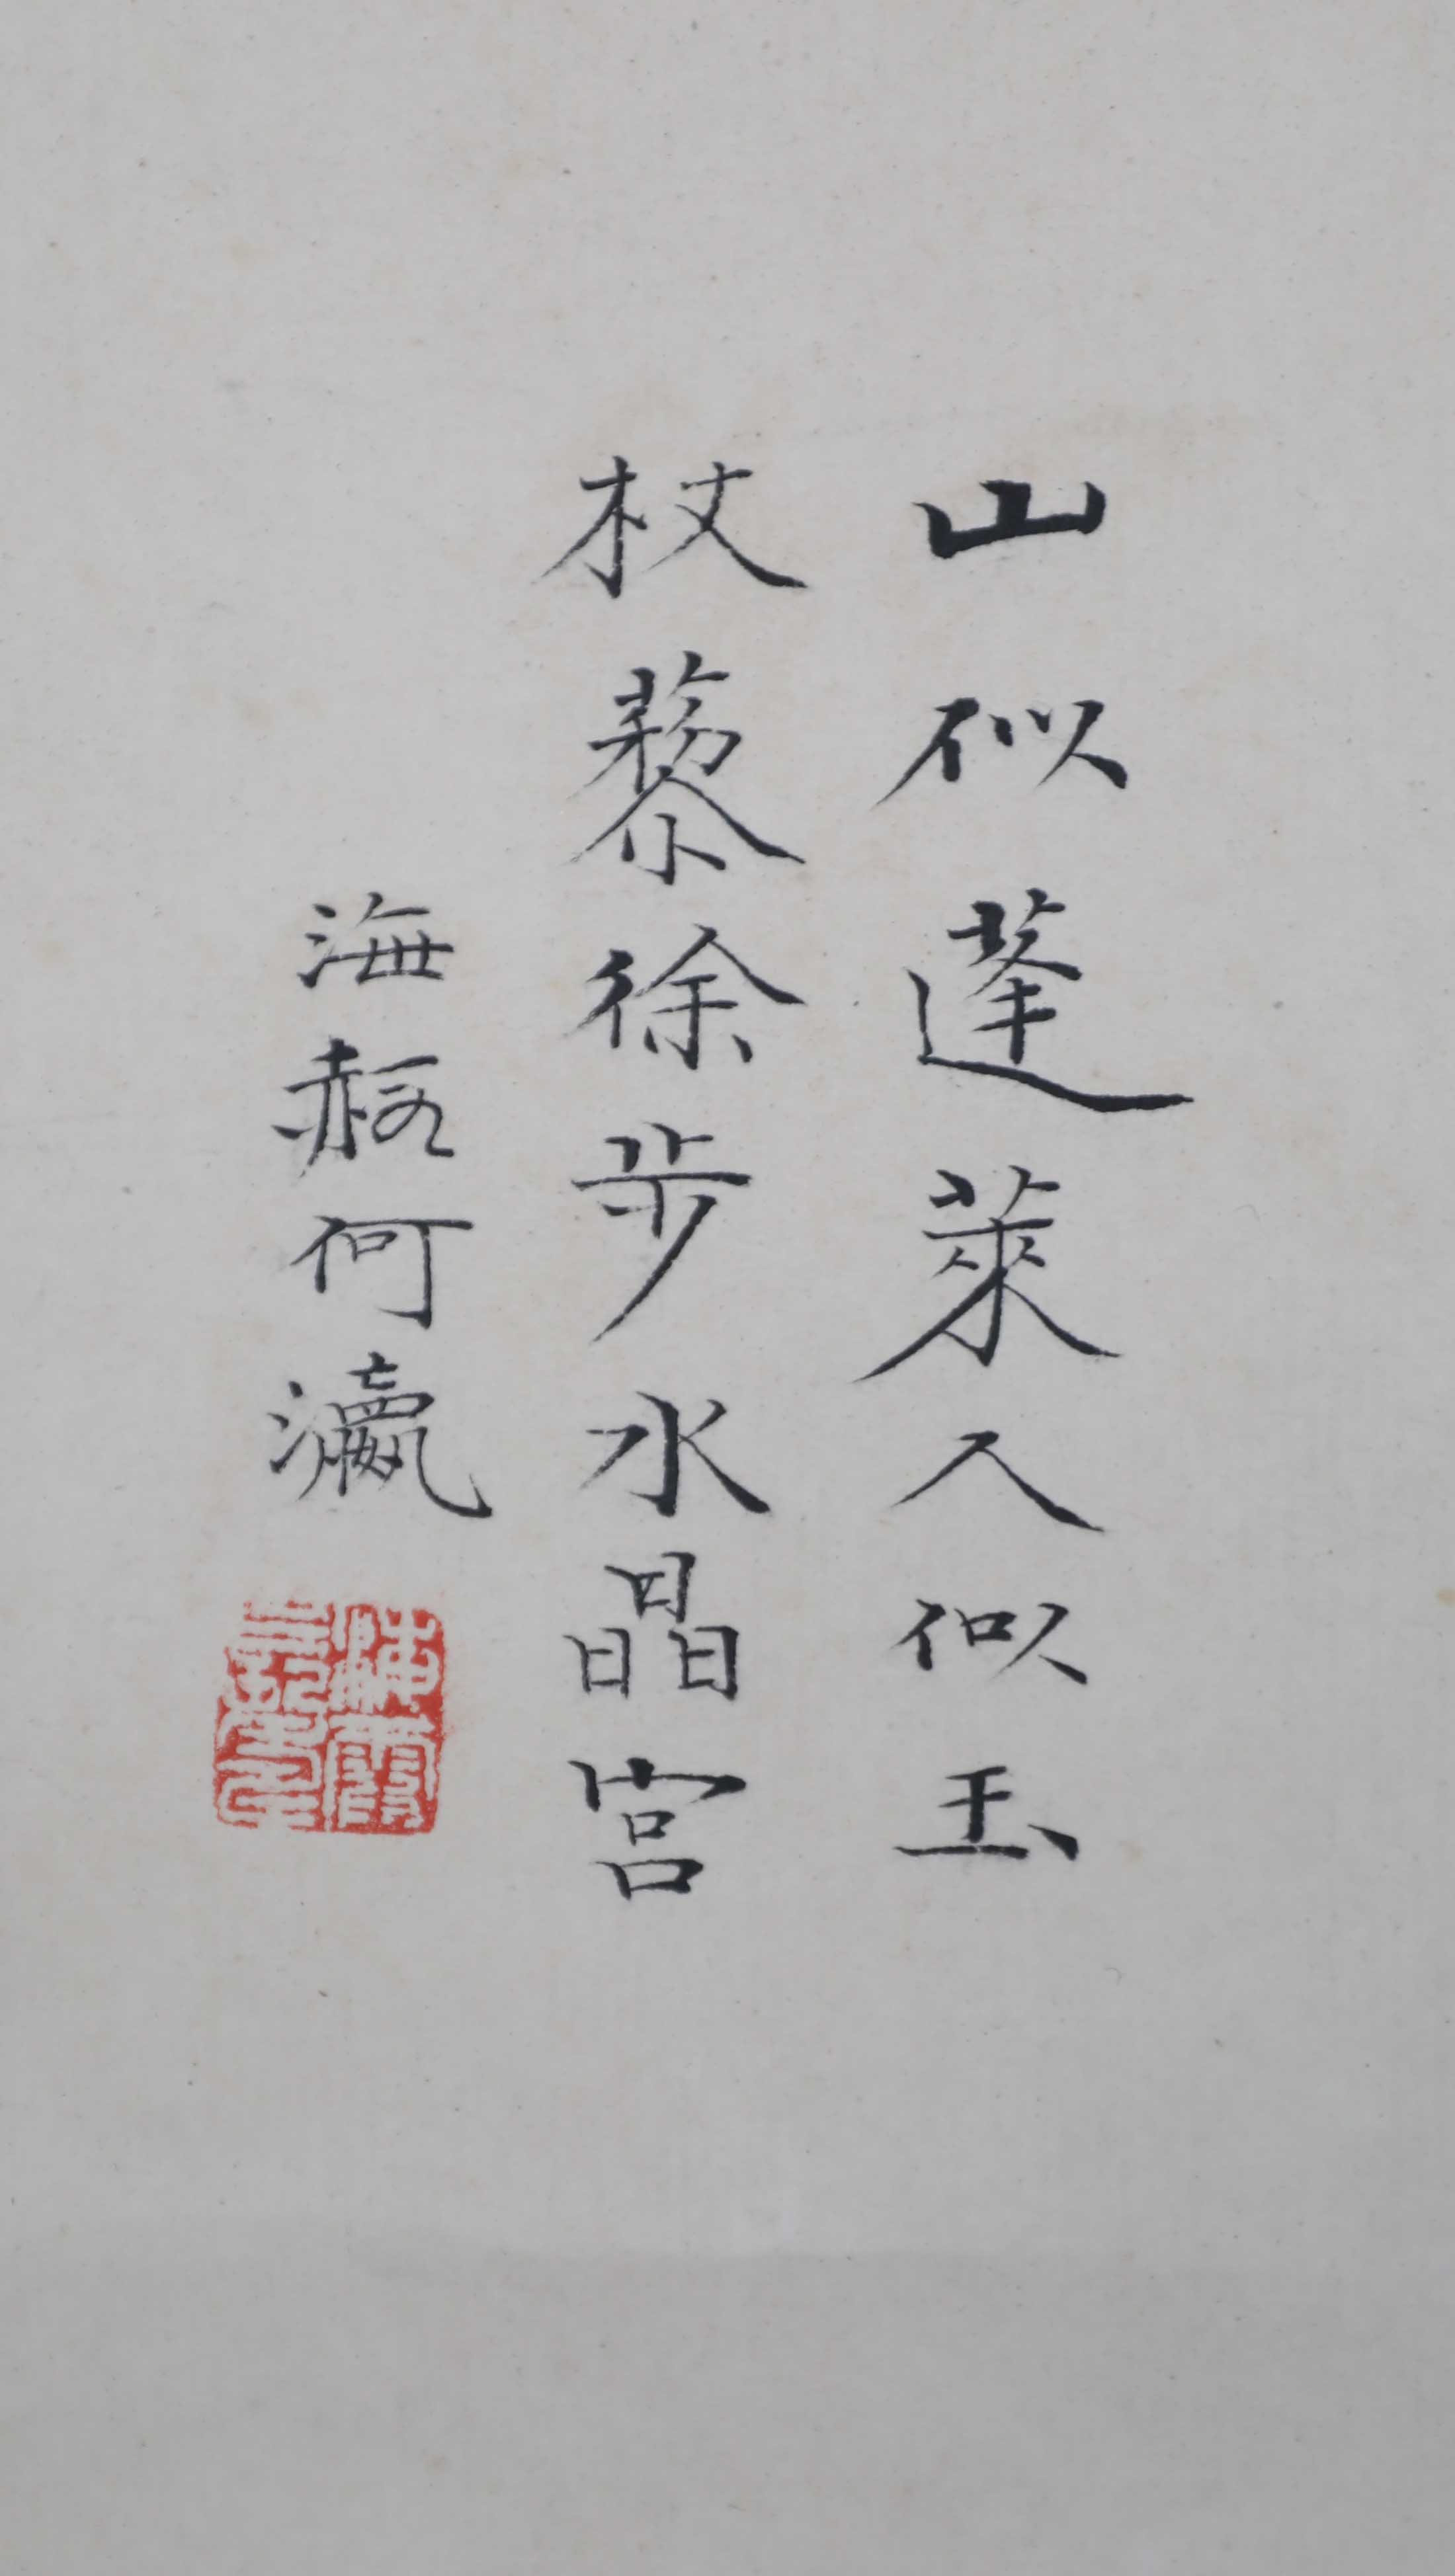 山似蓬萊人似玉
杖藜徐步水晶宮
海赮何瀛
海霞